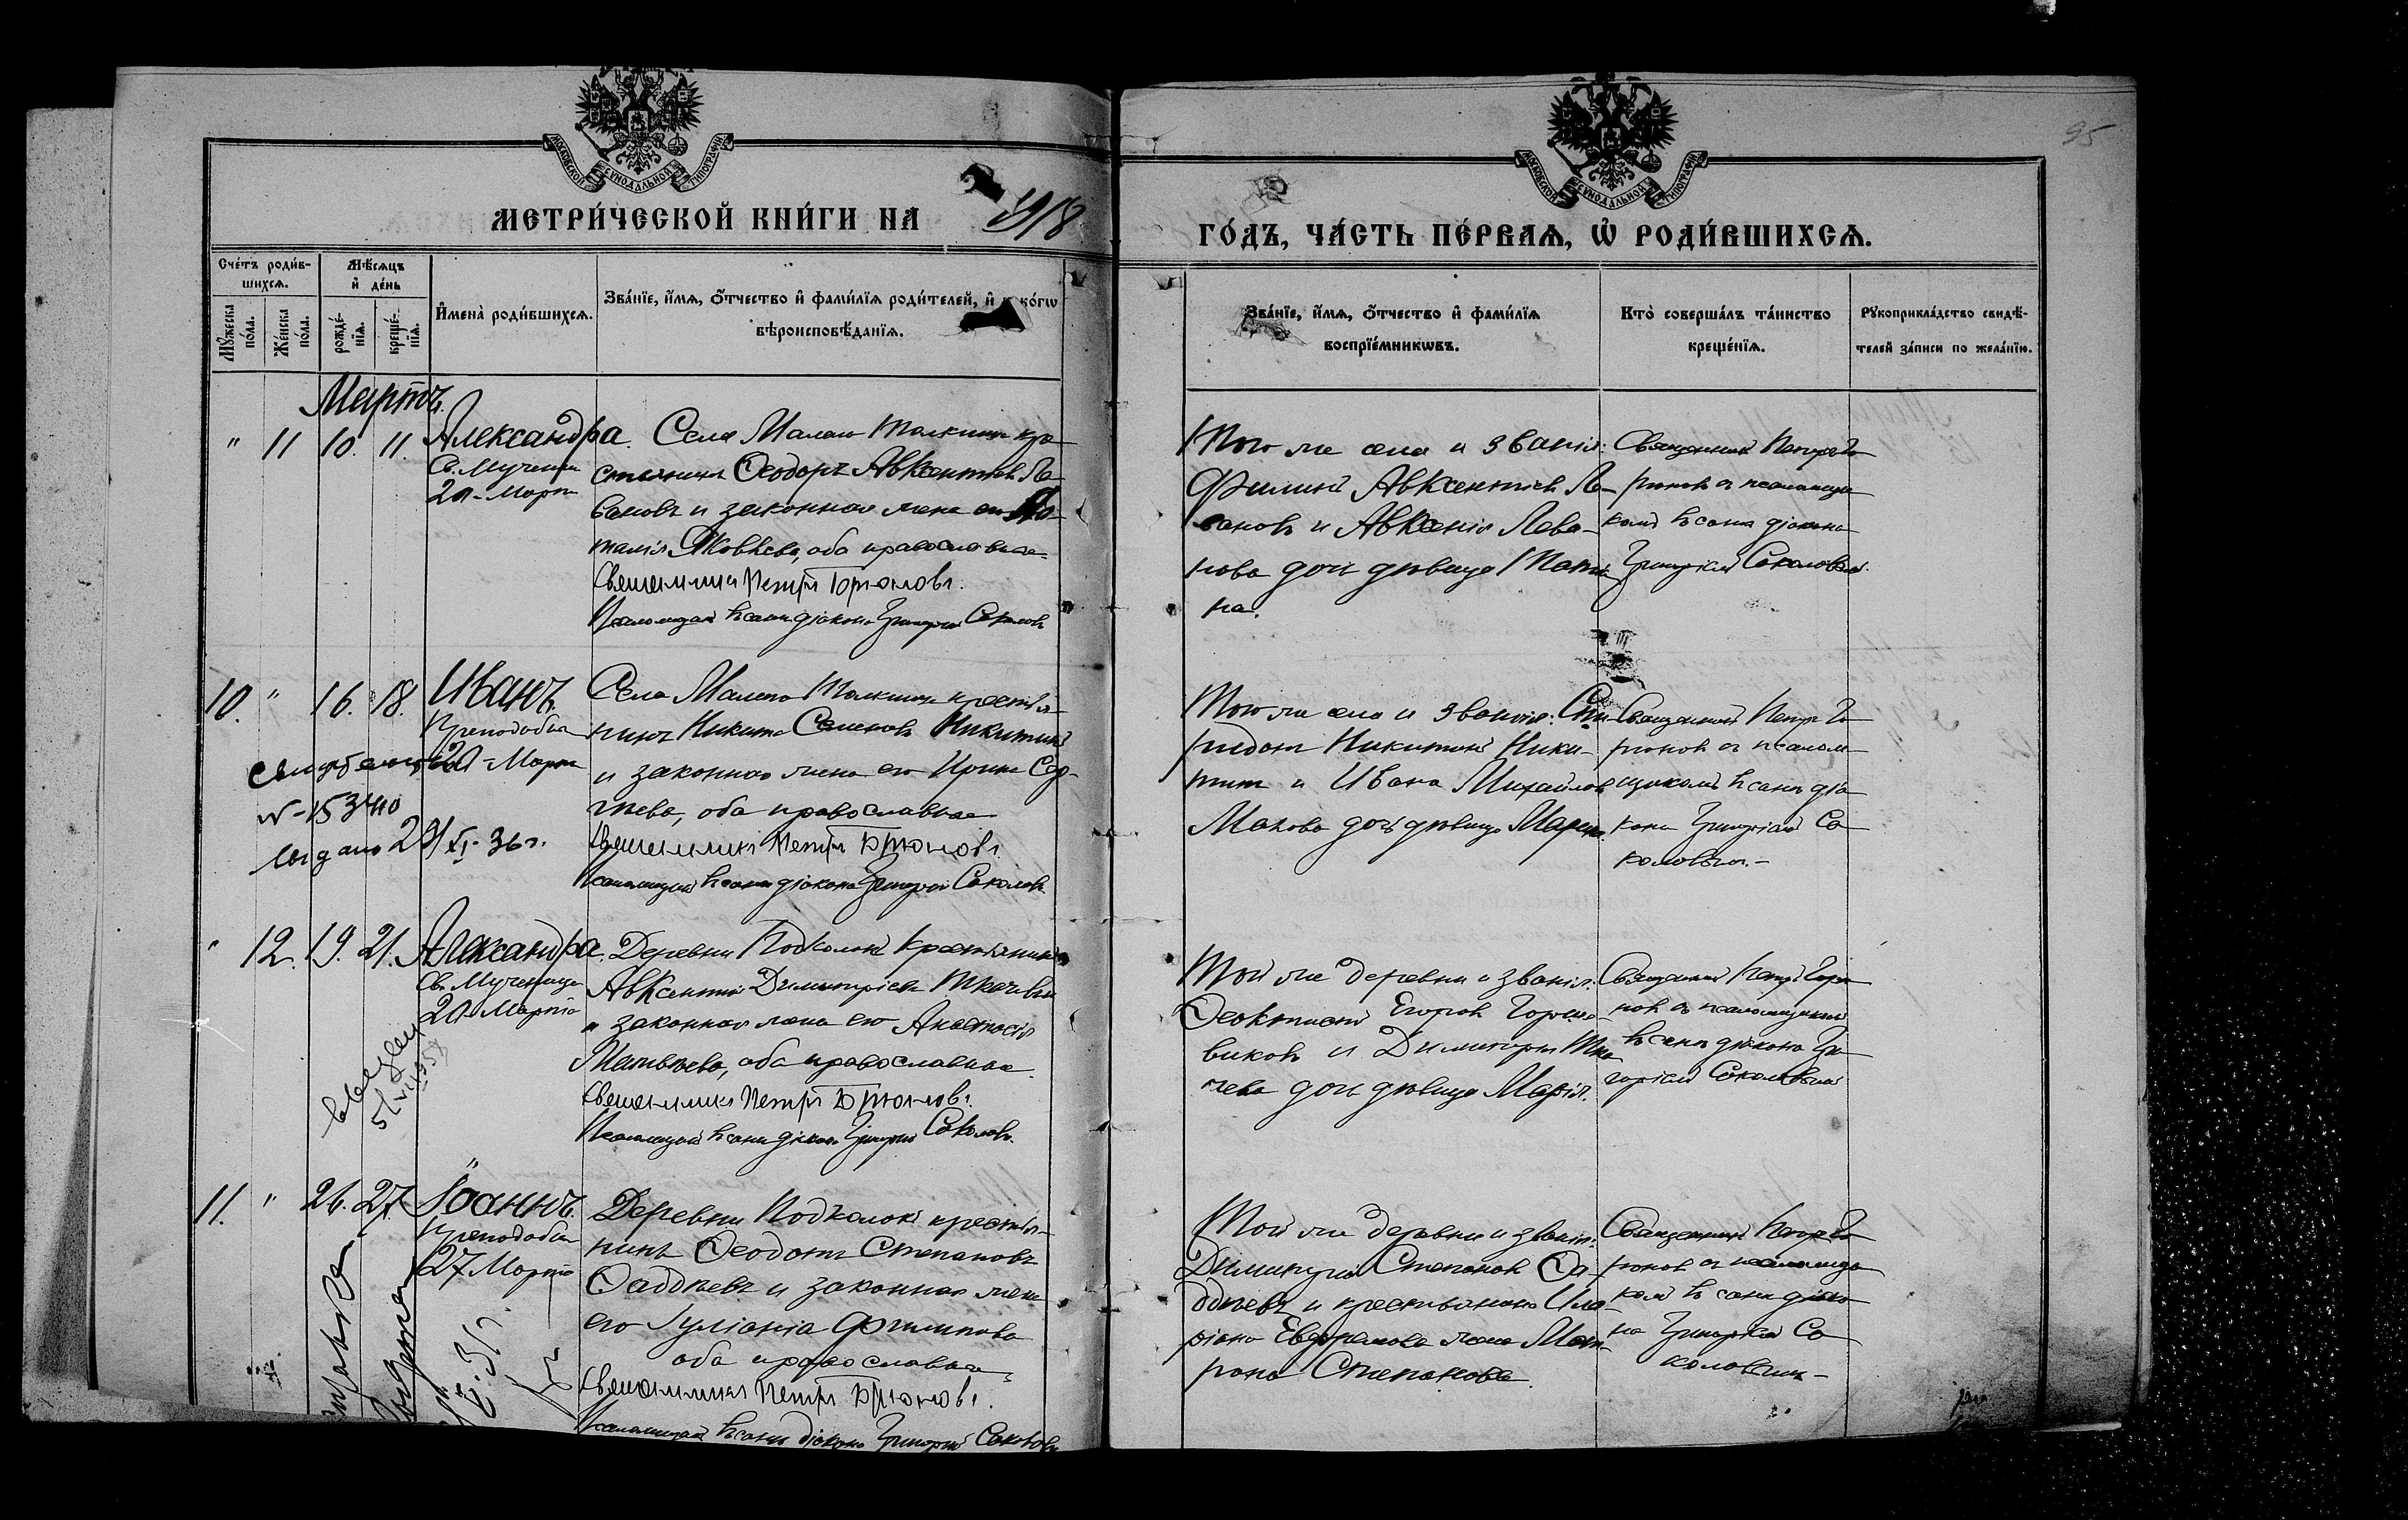 95
МОСКОВСКОЙ СѴНОДАЛЬНОЙ ТИПОГРАФІИ
МОСКОВСКОЙ СѴНОДАЛЬНОЙ ТИПОГРАФІИ
МЕТРИ́ЧЕСКОЙ КНИ́ГИ НА 1918
ГО́ДЪ, ЧА́СТЬ ПЕ́РВАѦ, Ѡ҆ РОДИ́ВШИХСѦ.
Сче́тъ роди́в-
шихсѧ.
Мꙋ́жеска по́ла.
Же́нска по́ла.
Мѣ́сѧцъ
и҆ де́нь
рожде́-
нїѧ.
креще́-
нїѧ.
И҆мена̀ роди́вшихсѧ.
Зва́нїе, и҆́мѧ, ѻ҆́тчество и҆ фами́лїѧ роди́телей, и҆ ко́гѡ
вѣроисповѣ́данїѧ.
Зва́нїе, и҆́мѧ, ѻ҆́тчество и҆ фами́лїѧ
воспрїе́мникѡвъ.
Кто̀ соверша́лъ та́инство
креще́нїѧ.
Рꙋкоприкла́дство свидѣ́-
телей за́писи по жела́нїю.
Мартъ.
" 11 10. 11. Александра.
Св. Мученицы
20 Марта
Села Малаго Толкиша кре-
стьянинъ Ѳеодоръ Авксентіевъ Ле-
вановъ и законная жена его На-
талія Яковлева, оба православные
Священникъ Петръ
Псаломщикъ въ санѣ діакона Григорій Соколовъ
Того же села и званія:
Филиппъ Авксентіевъ Ле-
вановъ и Авксенія Лева-
нова дочь дѣвица Татья-
на.
Священникъ Петръ
съ псаломщи-
комъ въ санѣ діакона
Григоріемъ Соколовымъ.
10. " 16. 18. Иванъ.
Преподобна
20 Марта
Села Малаго Толкиша крестья-
нинъ Никита Семеновъ Никитинъ
и законная жена его Ирина Сер-
гѣева, оба православные
Священникъ Петръ
Псаломщикъ въ санѣ діакона Григорій Соколовъ.
№ 153740
выдано 29/XI-36 г.
Того же села и званія: Спи-
ридонъ Никитинъ Ники-
тинъ и Ивана Михайлова
Махова дочь дѣвица Марія.
Священникъ Петръ
съ псалом-
щикомъ въ санѣ діа-
кона Григоріемъ Со-
коловымъ.-
" 12. 19. 21. Александра.
Св. Мученицы
20 Марта
Деревни Подкалокъ крестьянинъ
Авксентій Димитріевъ Ткачевъ
и законная жена его Анастасія
Матвѣева, оба православные
Священникъ Петръ
Псаломщикъ въ санѣ діакона Григорій Соколовъ.
Той же деревни и званія:
Ѳеоктистъ Егоровъ
и Димитрія Тка-
чева дочь дѣвица Марія.
Священникъ Петръ
съ псаломщикомъ
въ санѣ діакона Гри-
горіемъ Соколовымъ
11. " 26. 27. Іоаннъ.
Преподобна
27 Марта
Деревни Подкалокъ крестья-
нинъ Ѳеодотъ Степановъ
Ѳаддѣевъ и законная жена
его Іуліанія Филиппова
оба православные
Священникъ Петръ
Псаломщикъ въ санѣ діакона Григорій Соколовъ
Той же деревни и званія:
Димитрій Степановъ Ѳа-
ддѣевъ и крестьянина Ила-
ріона Евдокимова жена Мат-
рона Степанова.
Священникъ Петръ
съ псаломщи-
комъ въ санѣ діако-
на Григоріемъ Со-
коловымъ-